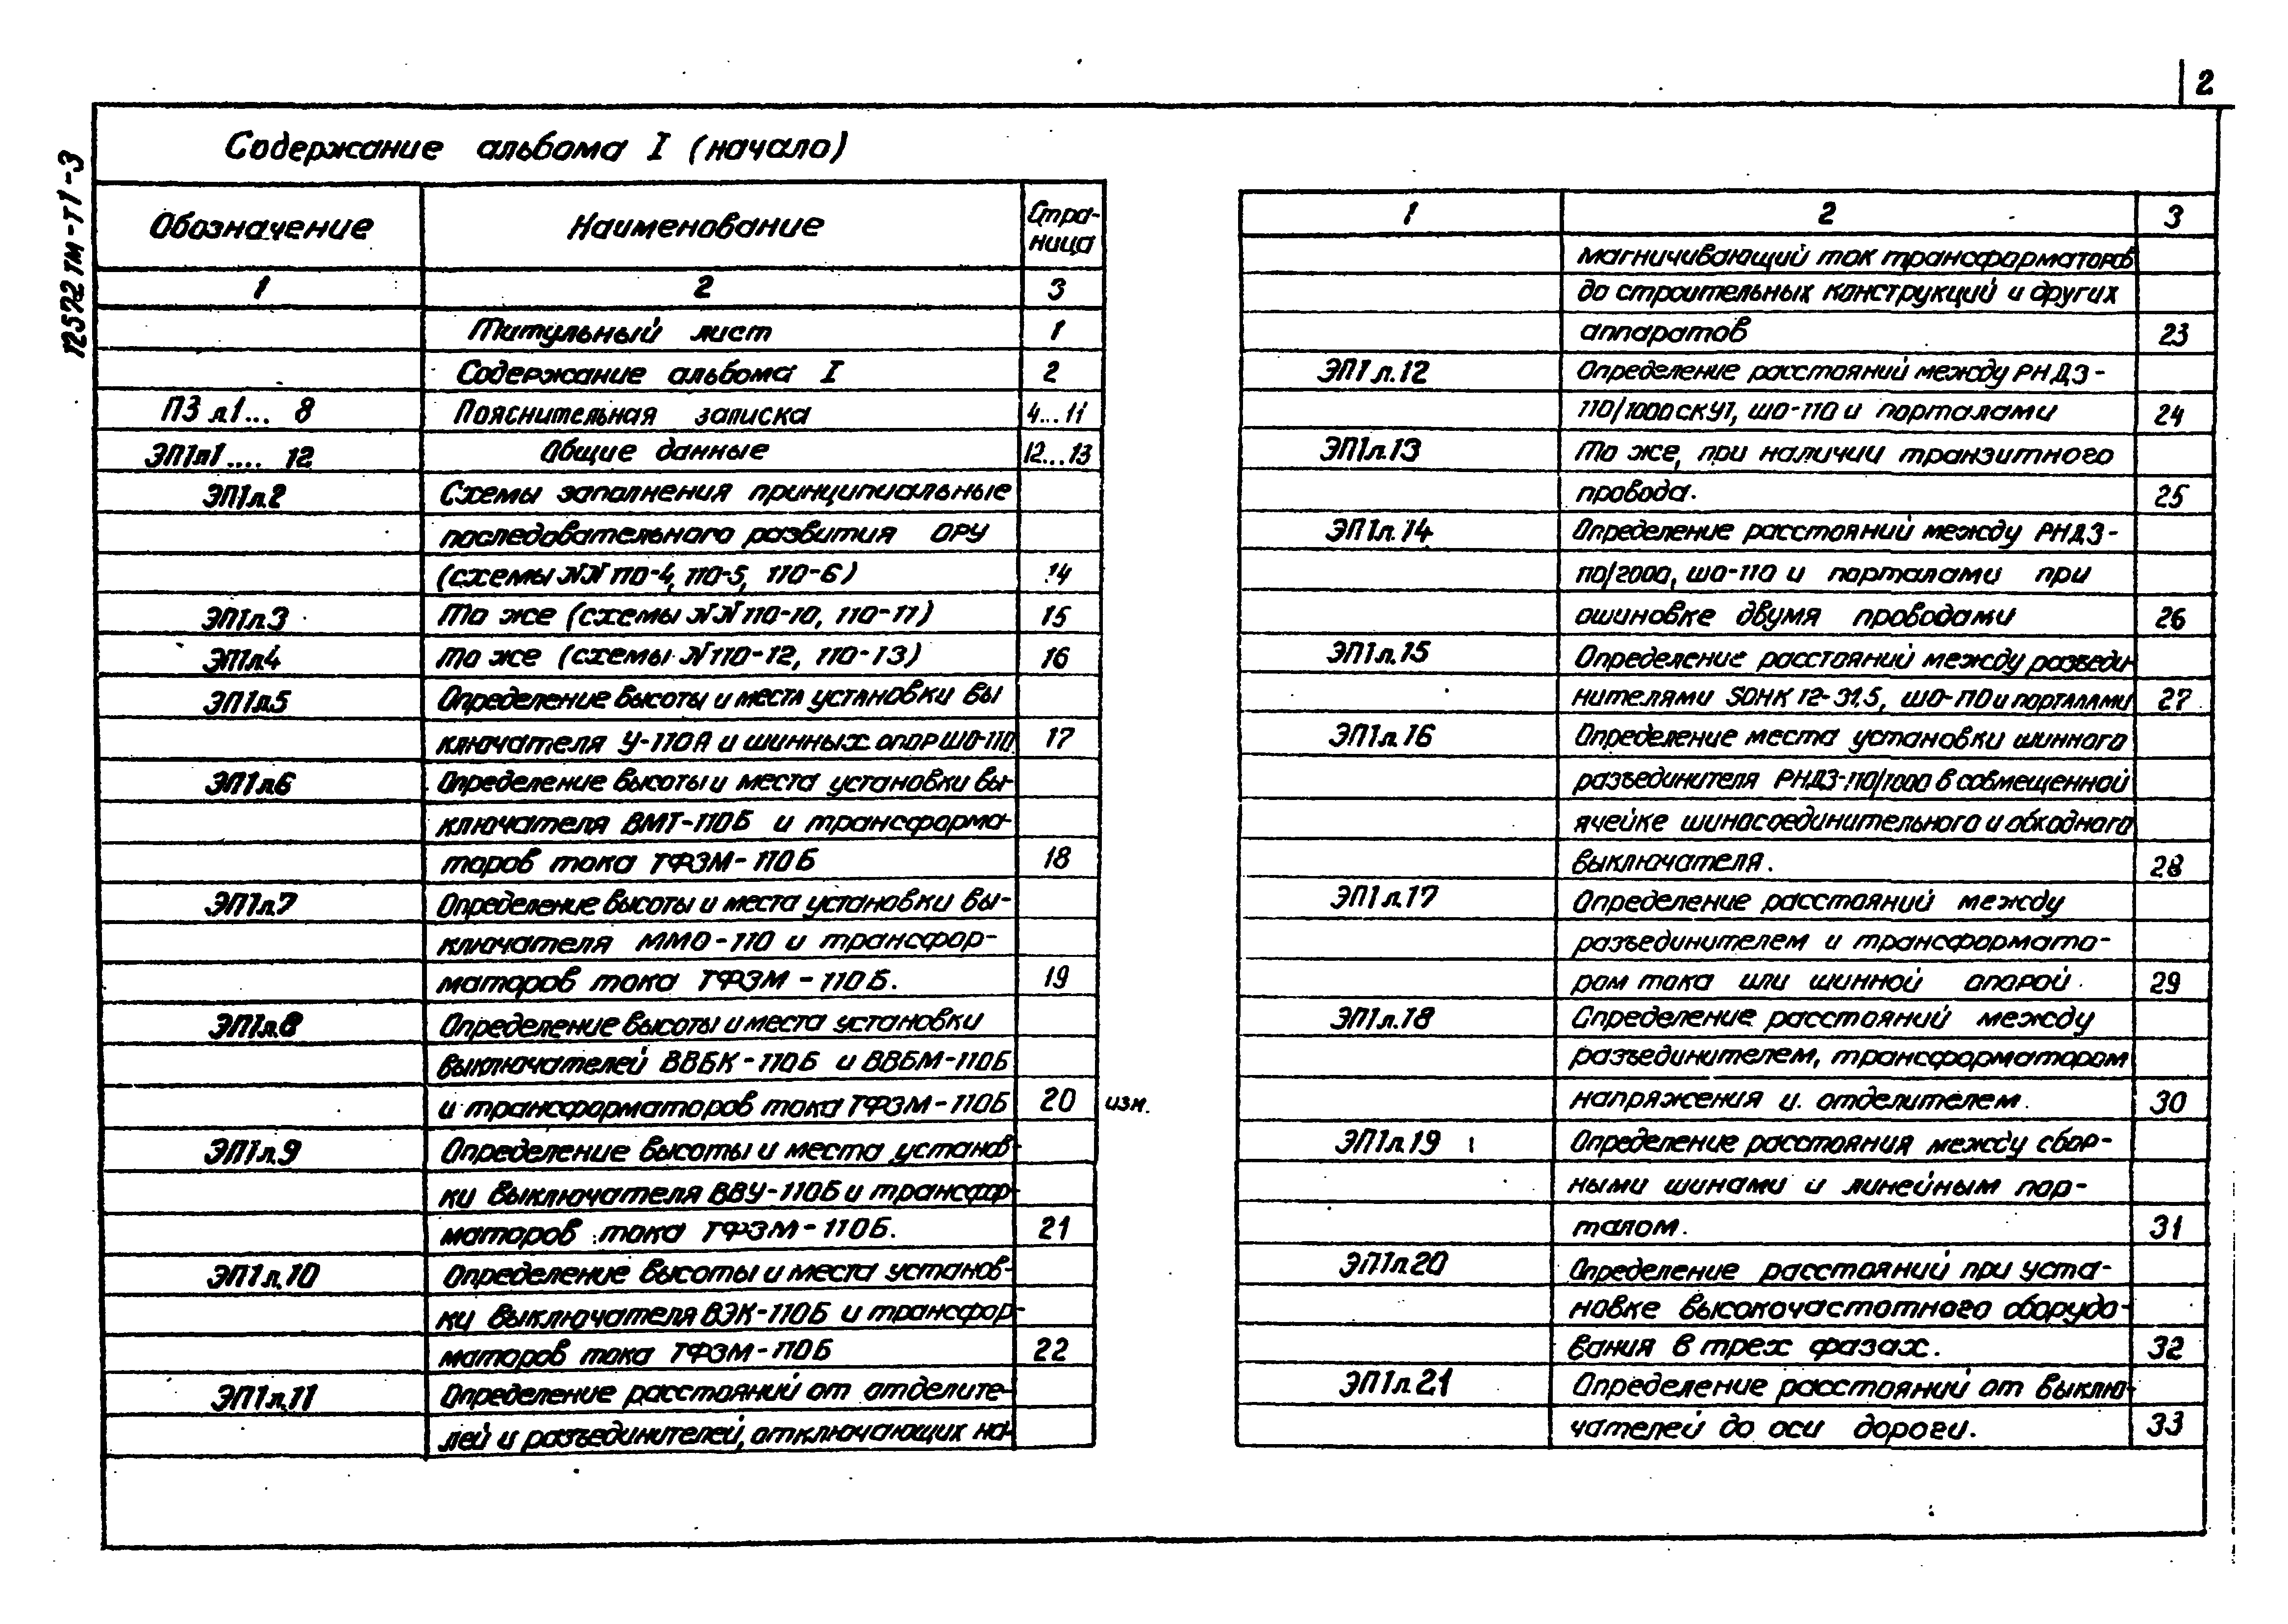 2
12572тм-т1-3
Содержание альбома I (начало)
Обозначение Наименование Стра-
ница
1 2 3
Титульный лист 1
Содержание альбома I 2
ПЗ л1... 8 Пояснительная записка 4...11
ЭП1л1.... 12 Общие данные 12...13
ЭП1л.2 Схемы заполнения принципиальные
последовательного развития ОРУ
(схемы NN 110-4, 110-5, 110-6) 14
ЭП1л.3 То же (схемы NN 110-10, 110-11) 15
ЭП1л.4 То же (схемы N 110-12, 110-13) 16
ЭП1л.5 Определение высоты и места установки вы
ключателя У-110А и шинных опор ШО-110 17
ЭП1л.6 Определение высоты и места установки вы-
ключателя ВМТ-110Б и трансформа-
торов тока ТФЗМ-110Б 18
ЭП1л.7 Определение высоты и места установки вы-
ключателя ММО-110 и трансфор-
маторов тока ТФЗМ-110Б. 19
ЭП1л.8 Определение высоты и места установки
выключателей ВВБК-110Б и ВВБМ-110Б
и трансформаторов тока ТФЗМ-110Б 20 изм.
ЭП1л.9 Определение высоты и места установ-
ки выключателя ВВУ-110Б и трансфор-
маторов тока ТФЗМ-110Б. 21
ЭП1л.10 Определение высоты и места установ-
ки выключателя ВЭК-110Б и трансфор-
маторов тока ТФЗМ-110Б 22
ЭП1л.11 Определение расстояний от отделите-
лей и разъединителей, отключающих на-
1 2 3
магничивающий ток трансформаторов
до строительных конструкций и других
аппаратов 23
ЭП1л.12 Определение расстояний между РНДЗ-
110/1000 СКУ1, ШО-110 и порталами 24
ЭП1л.13 То же, при наличии транзитного
провода. 25
ЭП1л.14 Определение расстояний между РНДЗ-
110/2000, ШО-110 и порталами при
ошиновке двумя проводами 26
ЭП1л.15 Определение расстояний между разъеди-
нителями SOHK 12-31,5, ШО-110 и порталами 27
ЭП1л.16 Определение места установки шинного
разъединителя РНДЗ-110/1000 в совмещенной
ячейке шиносоединительного и обходного
выключателя. 28
ЭП1л.17 Определение расстояний между
разъединителем и трансформато-
ром тока или шинной опорой. 29
ЭП1л.18 Определение расстояний между
разъединителем, трансформатором
напряжения и отделителем. 30
ЭП1л.19 Определение расстояния между сбор-
ными шинами и линейным пор-
талом. 31
ЭП1л.20 Определение расстояний при уста-
новке высокочастотного оборудо-
вания в трех фазах. 32
ЭП1л.21 Определение расстояний от выклю-
чателей до оси дороги. 33